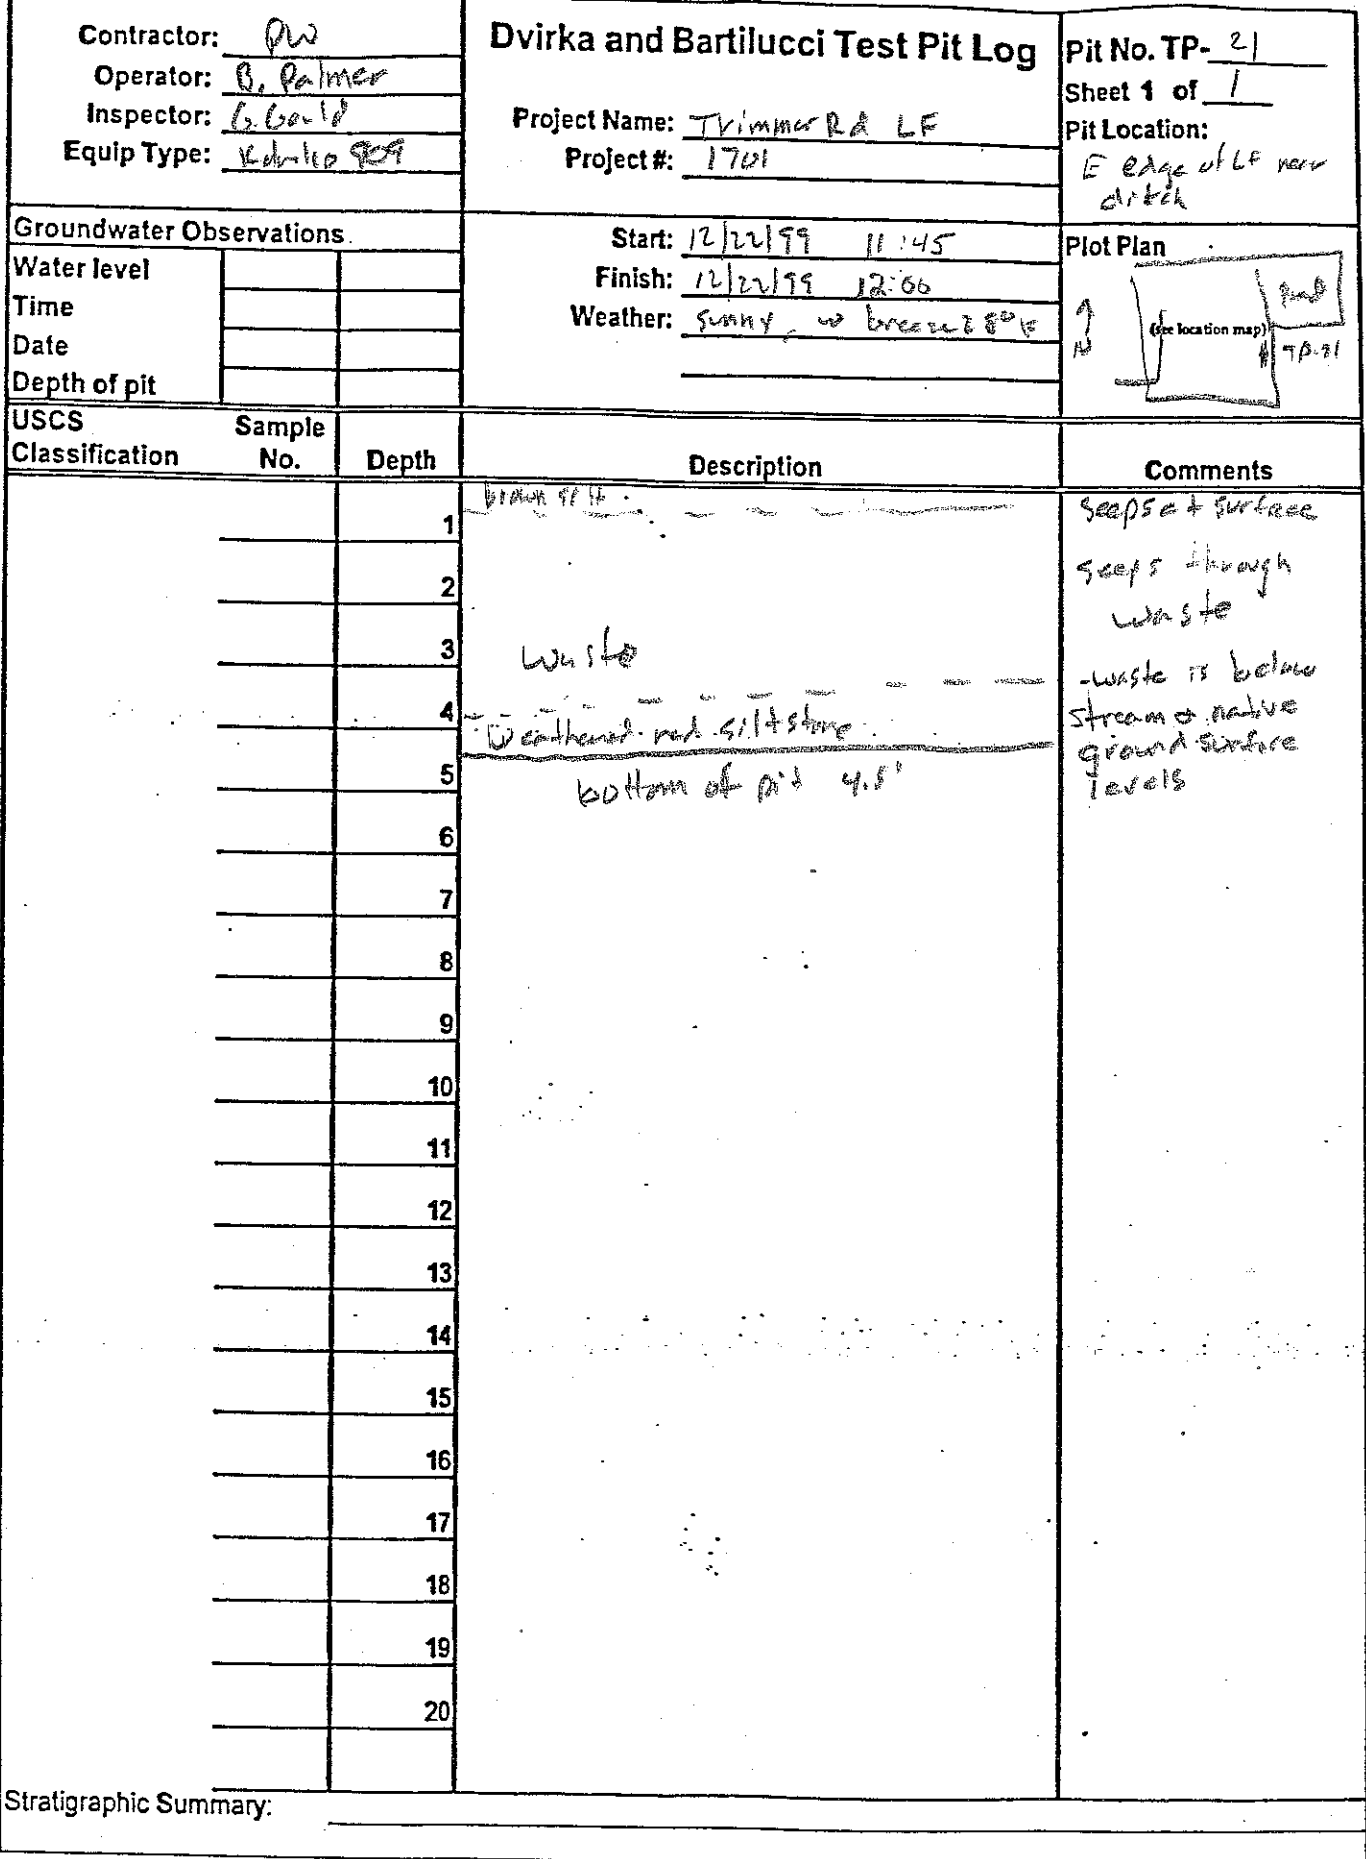 Contractor: PW
Operator: B. Palmer
Inspector: G. Gould
Equip Type:
Dvirka and Bartilucci Test Pit Log
Project Name: Trimmer Rd LF
Project #: 1701
Pit No. TP- 21
Sheet 1 of 1
Pit Location:
E edge of LF near
ditch
Groundwater Observations
Water level
Time
Date
Depth of pit
Start: 12/22/99 11:45
Finish: 12/22/99
Weather: sunny, w breeze
Plot Plan
(see location map)
N
Pond
TP-21
USCS
Classification
Sample
No.
Depth
Description
Comments
brown silt
seeps at surface
1
seeps through
2
waste
3
waste
-waste is below
4
stream & native
weathered red siltstone
ground surface
5
bottom of pit 4.5'
levels
6
7
8
9
10
11
12
13
14
15
16
17
18
19
20
Stratigraphic Summary: